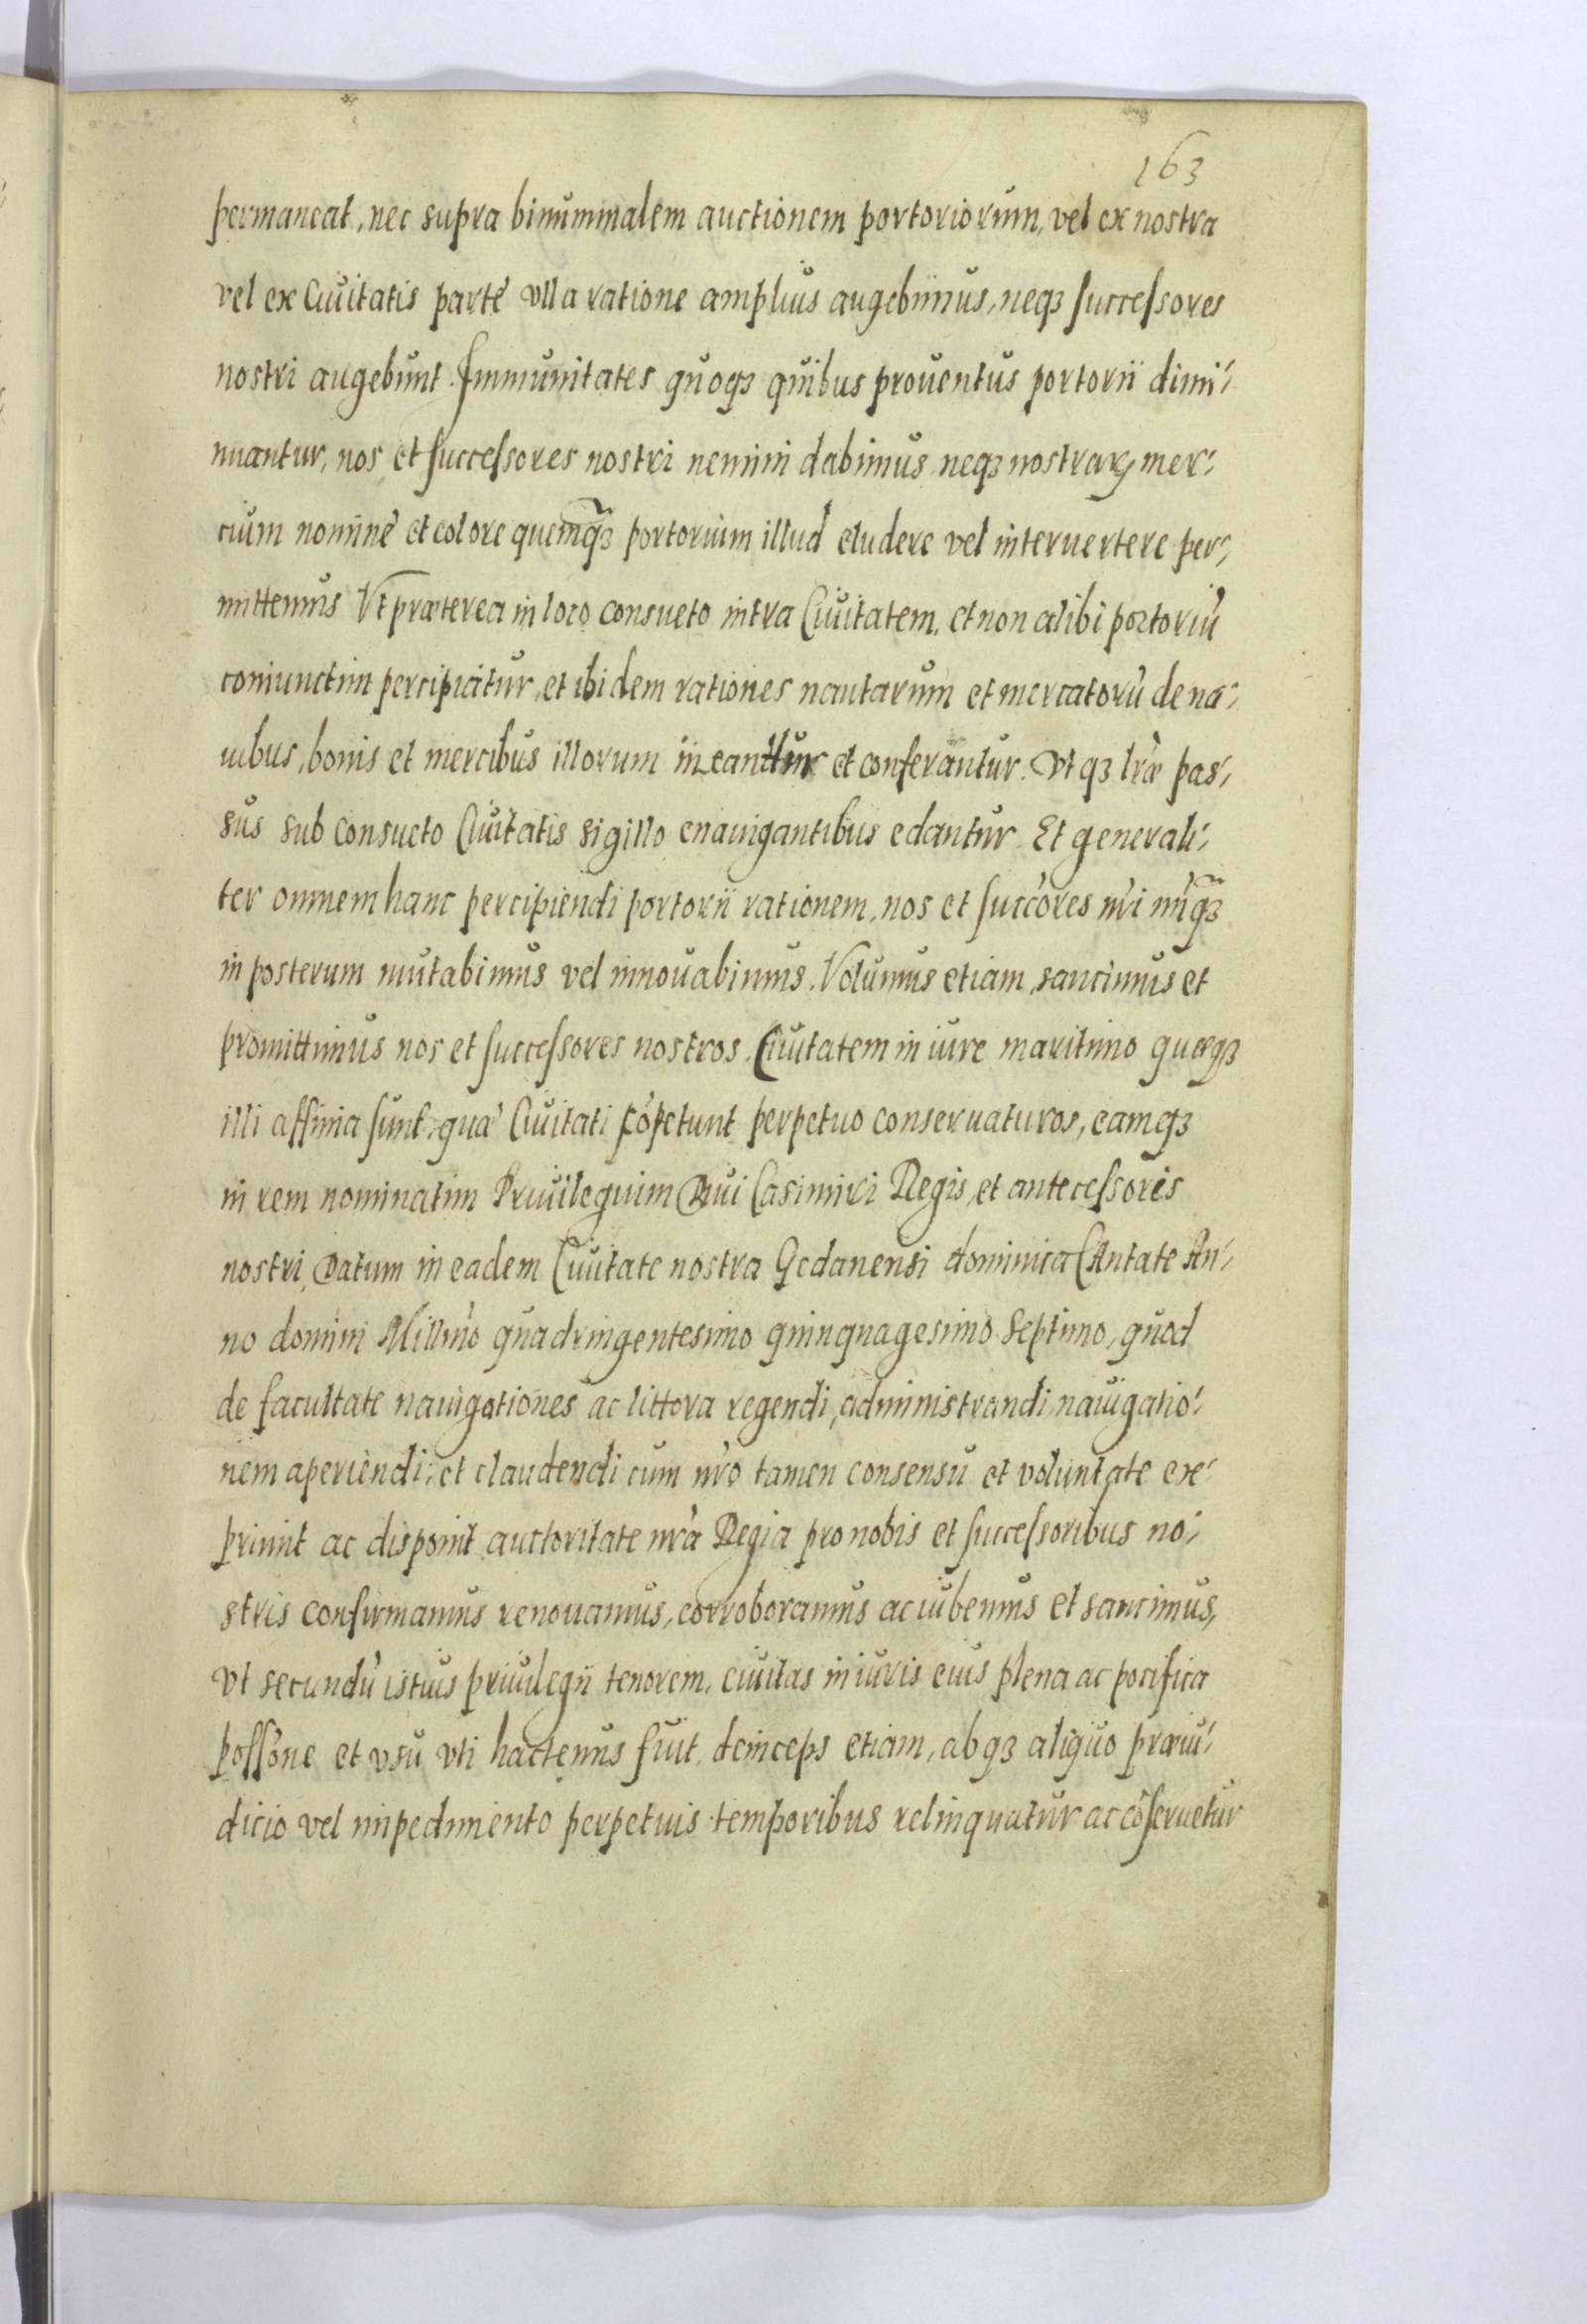 163
permaneat, nec supra binummalem auctionem portoriorum, vel ex nostra
vel ex Ciuitatis parte vlla ratione amplius augebimus, neqꝫ successores
nostri augebunt. Immunitates quoqꝫ quibus prouentus portorii dimi-
nuantur, nos et successores nostri nemini dabimus neqꝫ nostrarꝫ mer-
cium nomine et colore quemqꝫ portorium illud eludere vel interuertere per-
mittemus Vt præterea in loco consueto intra Ciuitatem, et non alibi portoriũ
coniunctim percipiatur, et ibidem rationes nautarum et mercatorũ de na-
uibus, bonis et mercibus illorum ineantur et conferantur. Vtqꝫ lr̃æ pas-
sus sub consueto Ciuitatis sigillo enauigantibus edantur. Et generali-
ter omnem hanc percipiendi portorii rationem, nos et succ̃ores nr̃i nũqꝫ
in posterum mutabimus vel innouabimus. Volumus etiam, sancimus et
promittimus nos et successores nostros. Ciuitatem in iure maritimo quæqꝫ
illi affinia sunt, quã Ciuitati cõpetunt perpetuo conseruaturos, eamqꝫ
in rem nominatim Priuilegium Diui Casimiri Regis, et antecessoris
nostri, Datum in eadem Ciuitate nostra Gedanensi dominica CAntate An-
no domini Millm̃o quadringentesimo quinquagesimo septimo, quod
de facultate nauigationes ac littora regendi, administrandi, nauigatio-
nem aperiendi, et claudendi cum nr̃o tamen consensu et voluntate ex-
primit ac disponit auctoritate nr̃a Regia pro nobis et successoribus no-
stris confirmamus renouamus, corroboramus ac iubemus et sancimus,
vt secundũ istius priuilegii tenorem, ciuitas in iuris eius plena ac pacifica
posso͂ne et vsu vti hactenus fuit, deinceps etiam, absqꝫ aliquo præiu-
dicio vel impedimento perpetuis temporibus relinquatur ac cõseruetur